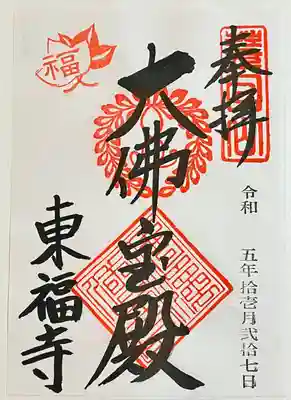 奉拝
令和 五年拾壱月弐拾七日
大佛宝殿
東福寺
福